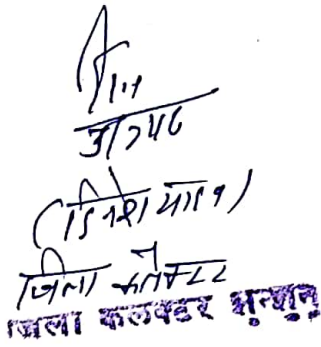 अध्यक्ष
(दिनेश यादव)
जिला कलेक्टर
जिला कलक्टर झुन्झुनू